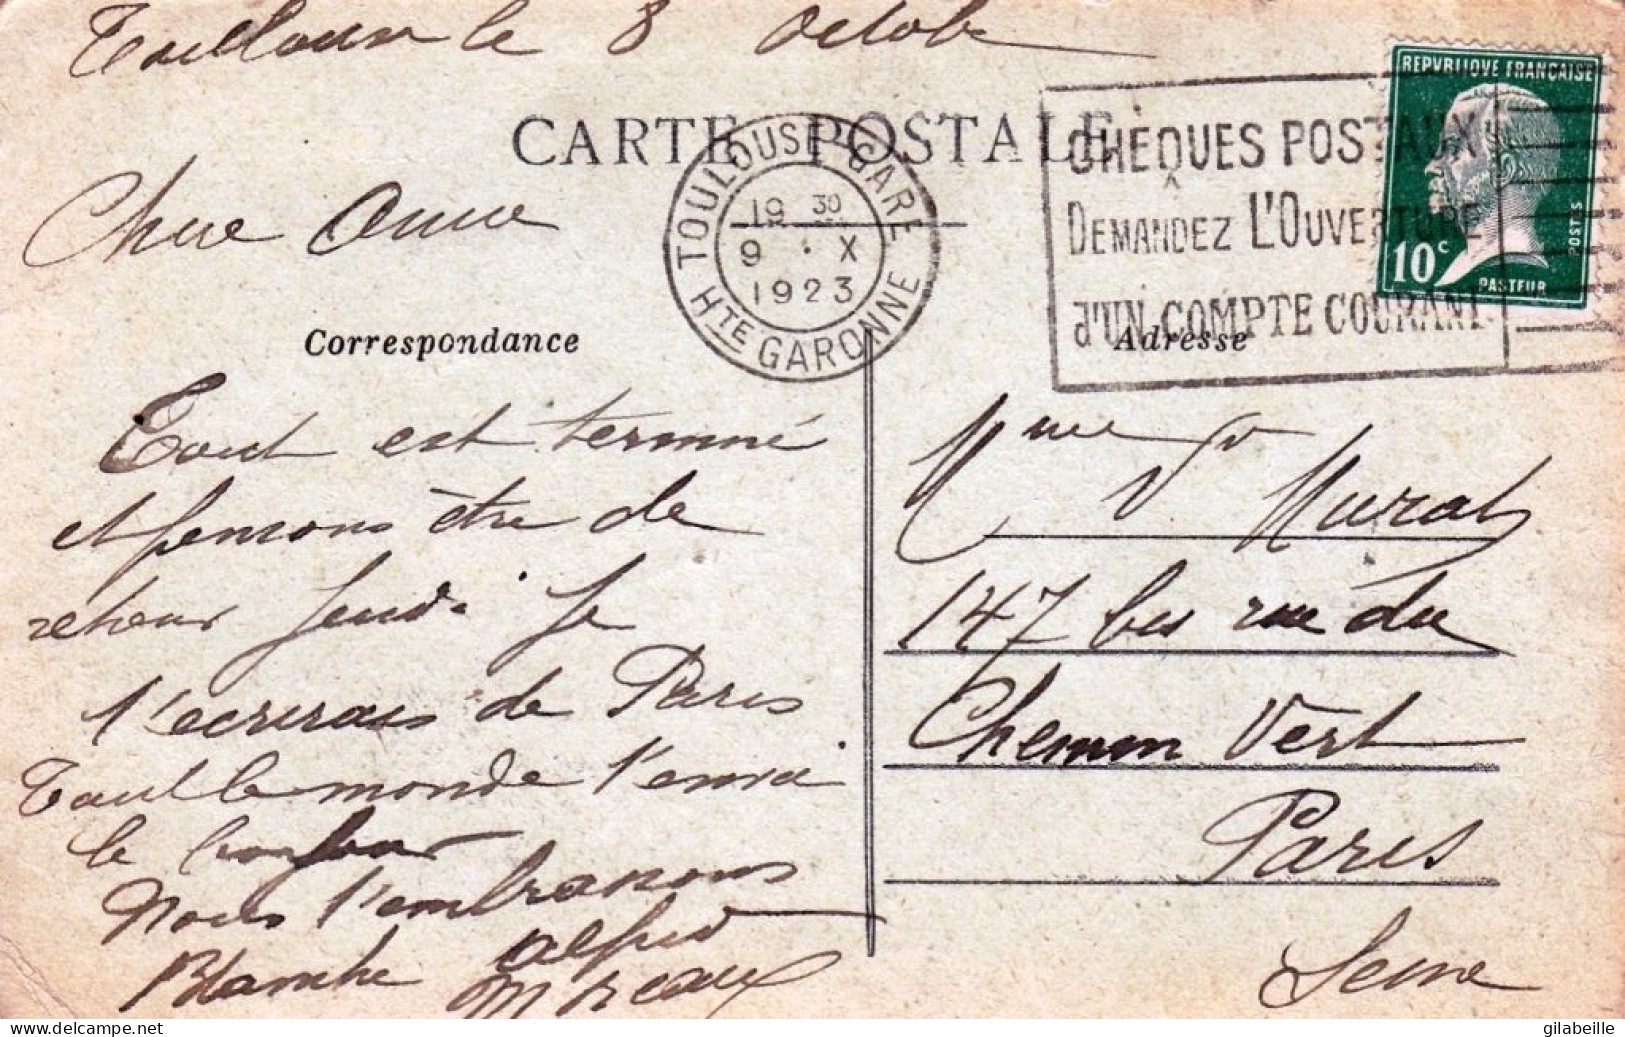 Toulouse le 8 Octob
CARTE POSTALE
TOULOUSE GARE
19 30
9 · X
1923
HTE GARONNE
CHÈQUES POSTAUX
DEMANDEZ L'OUVERTURE
d'UN COMPTE COURANT
REPVBLIQVE FRANÇAISE
POSTES
10c
PASTEUR
Chere
Correspondance
Adresse
Tout est terminé
et pensons être de
retour Jeudi Je
t'ecrirais de Paris
Tout le monde t'envoi
le bonjour
Nous t'embrassons
Blanche Alfred
Mme Vv Murat
147 bis rue du
Chemin Vert
Paris
Seine
delcampe.net
gilabeille